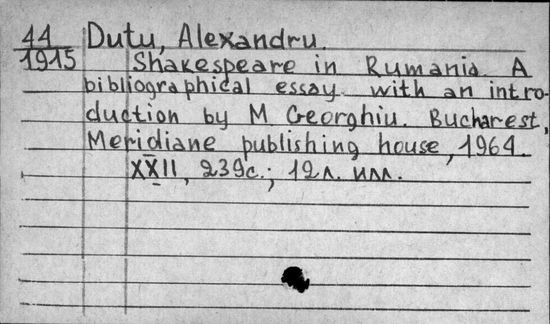 44 Dutu, Alexandru.
1915 Shakespeare in Rumania. A
bibliographical essay with an intro-
duction by M. Georghiu. Bucharest,
Meridiane publishing house, 1964.
XXII, 239с.; 12л. илл.